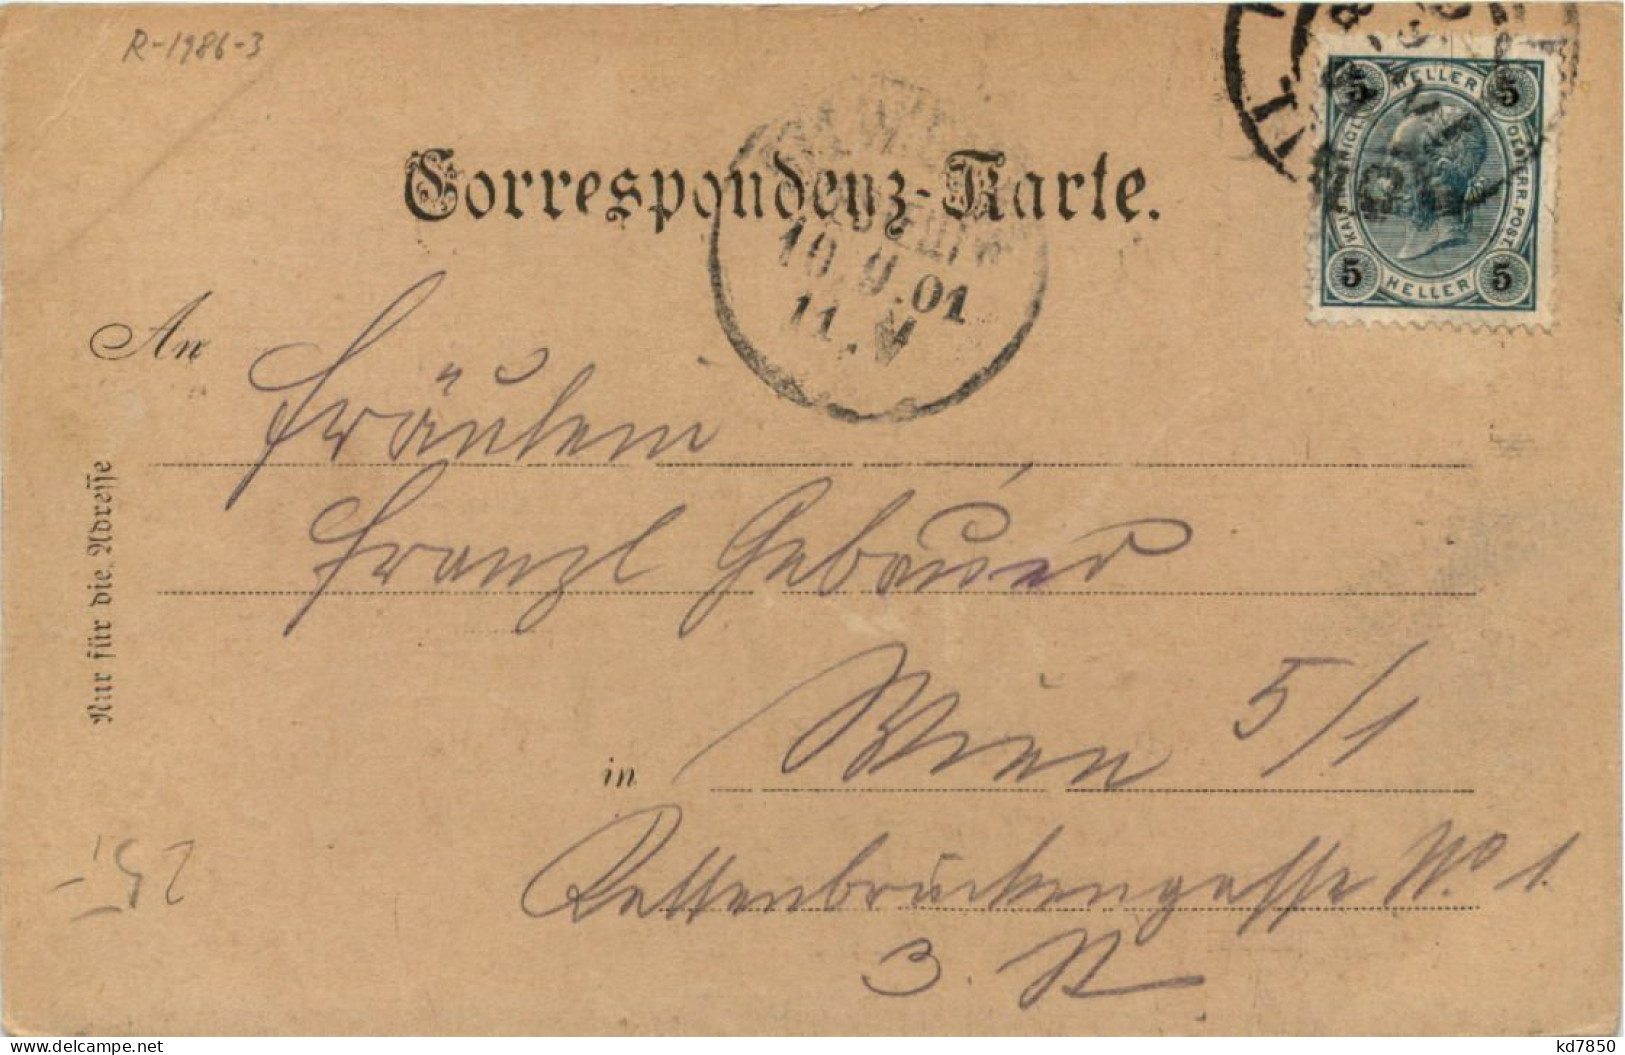 R-1986-3
5 HELLER 5
KAIS. KÖNIGL. OESTERR. POST.
5 HELLER 5
Correspondenz-Karte.
10.9.01
11.V
An
Fräulein
Franzl Gebauer
in Wien 5/1
Rettenbrückengasse No 1.
3. St
Nur für die Adresse
25,-
kd7850